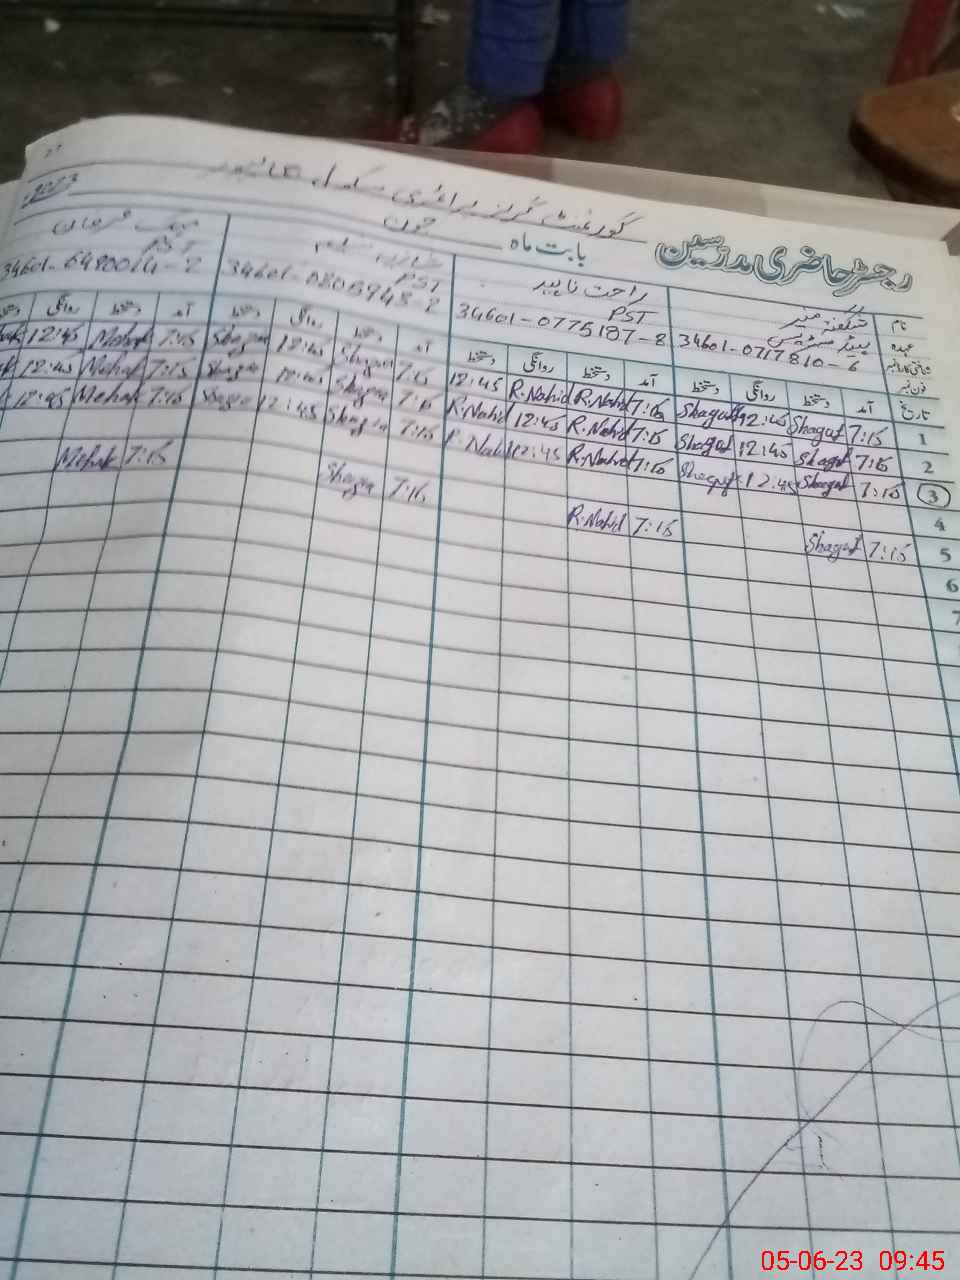 گورنمنٹ گرلز پرائمری سکول
2023
رجسٹر حاضری مدرسین بابت ماہ جون
نام شگفتہ منیر راحت ناہید
عہدہ ہیڈ مسٹریس PST PST PST
شناختی کارڈ نمبر 34601-0717810-6 34601-0775187-8 34601-0806948-2 34601-6490064-2
فون نمبر
تاریخ آمد دستخط روانگی دستخط آمد دستخط روانگی دستخط آمد دستخط روانگی دستخط آمد دستخط روانگی دستخط
1 7:15 Shaguf 12:45 Shaguf 7:15 R.Nahid R.Nahid 12:45 7:15 Shagua 12:45 Shagua 7:15 Mehak 12:45
2 7:15 Shaguf 12:45 Shaguf 7:15 R.Nahid 12:45 R.Nahid 7:15 Shagua 12:45 Shagua 7:15 Mehak 12:45
3 7:15 Shaguf 12:45 Shaguf 7:15 R.Nahid 12:45 R.Nahid 7:15 Shagua 12:45 Shagua 7:15 Mehak 12:45
4
5 7:15 Shaguf 7:15 R.Nahid 7:15 Shagua 7:15 Mehak
6
7
05-06-23 09:45